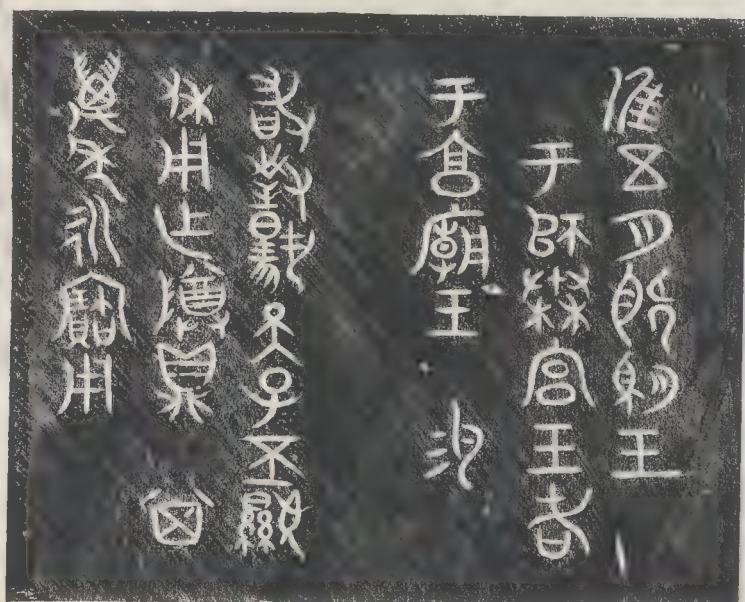 隹五月既望王
于師秦宮王各
于亯廟王
敢對揚天子丕顯
休用乍尊鼎其
萬年永寶用